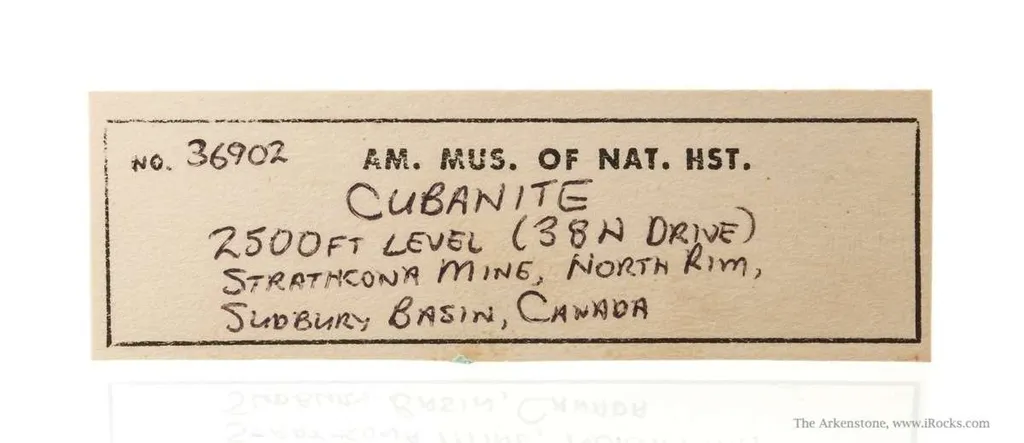 NO. 36902 AM. MUS. OF NAT. HST.
CUBANITE
2500FT LEVEL (38N DRIVE)
STRATHCONA MINE, NORTH RIM,
SUDBURY BASIN, CANADA
The Arkenstone, www.iRocks.com